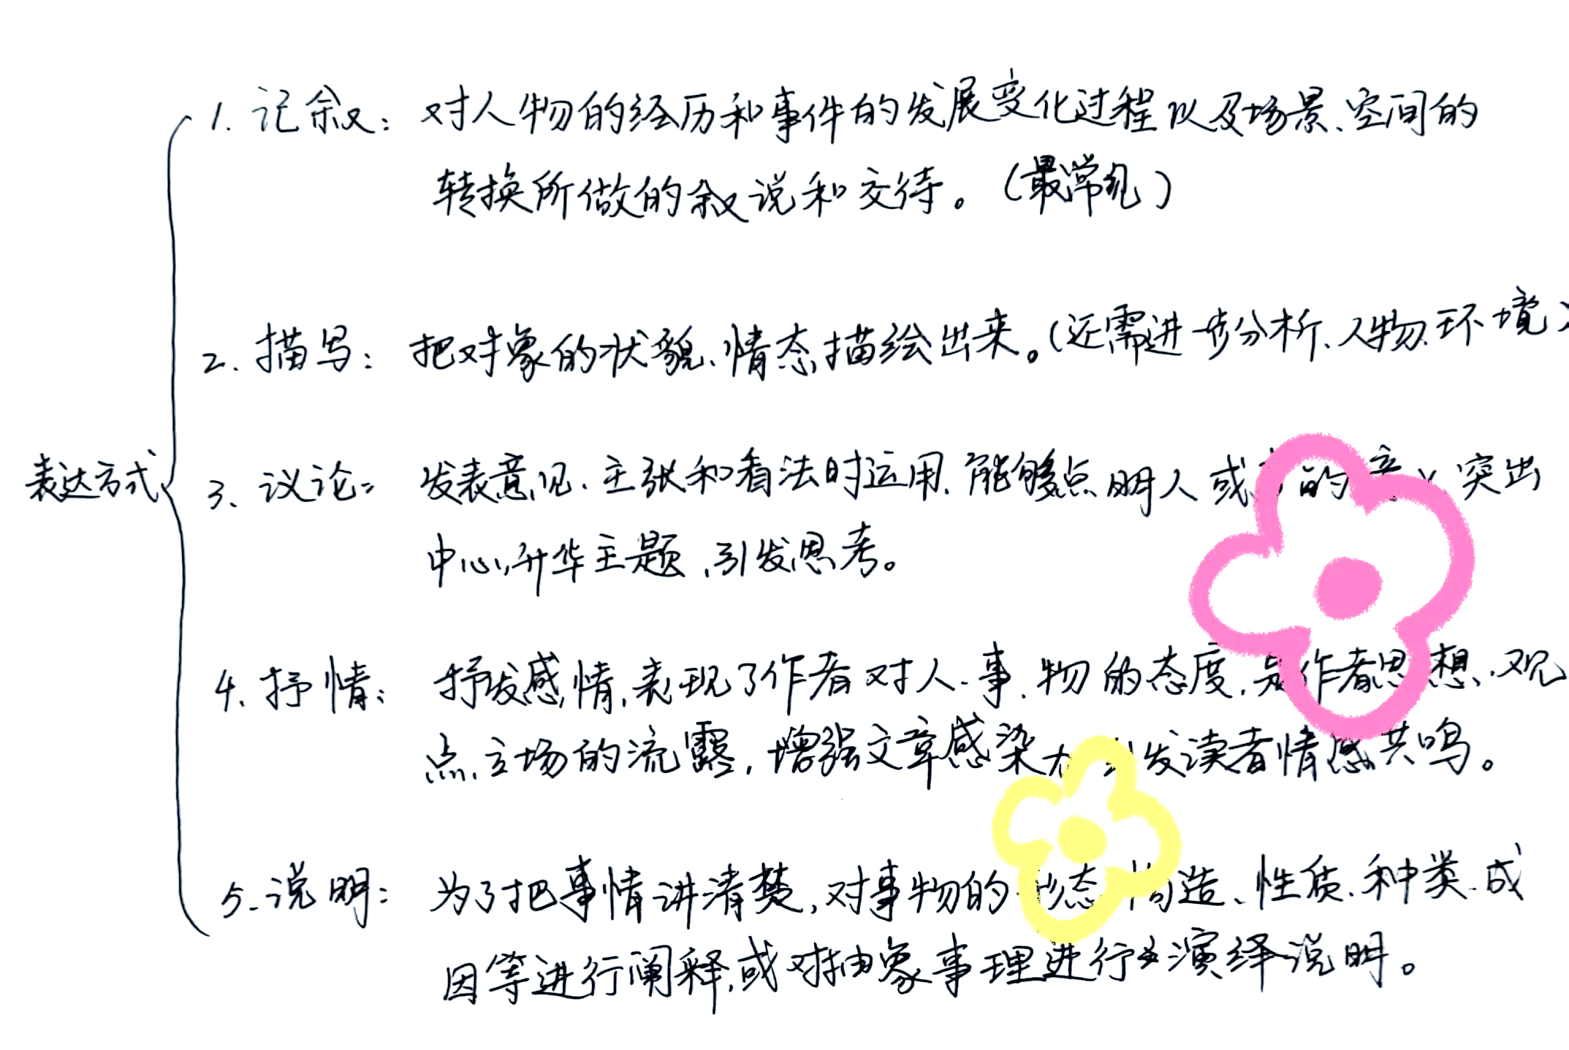 表达方式
1. 记叙：对人物的经历和事件的发展变化过程以及场景、空间的
转换所做的叙说和交待。（最常见）
2. 描写：把对象的状貌、情态描绘出来。（还需进一步分析、人物、环境）
3、议论：发表意见、主张和看法时运用、能够点明人或 的 突出
中心，升华主题，引发思考。
4、抒情：抒发感情，表现了作者对人、事、物的态度，是作者思想、观
点、立场的流露，增强文章感染 发读者情感共鸣。
5、说明：为了把事情讲清楚，对事物的形态 构造、性质、种类、成
因等进行阐释，或对抽象事理进行演绎说明。